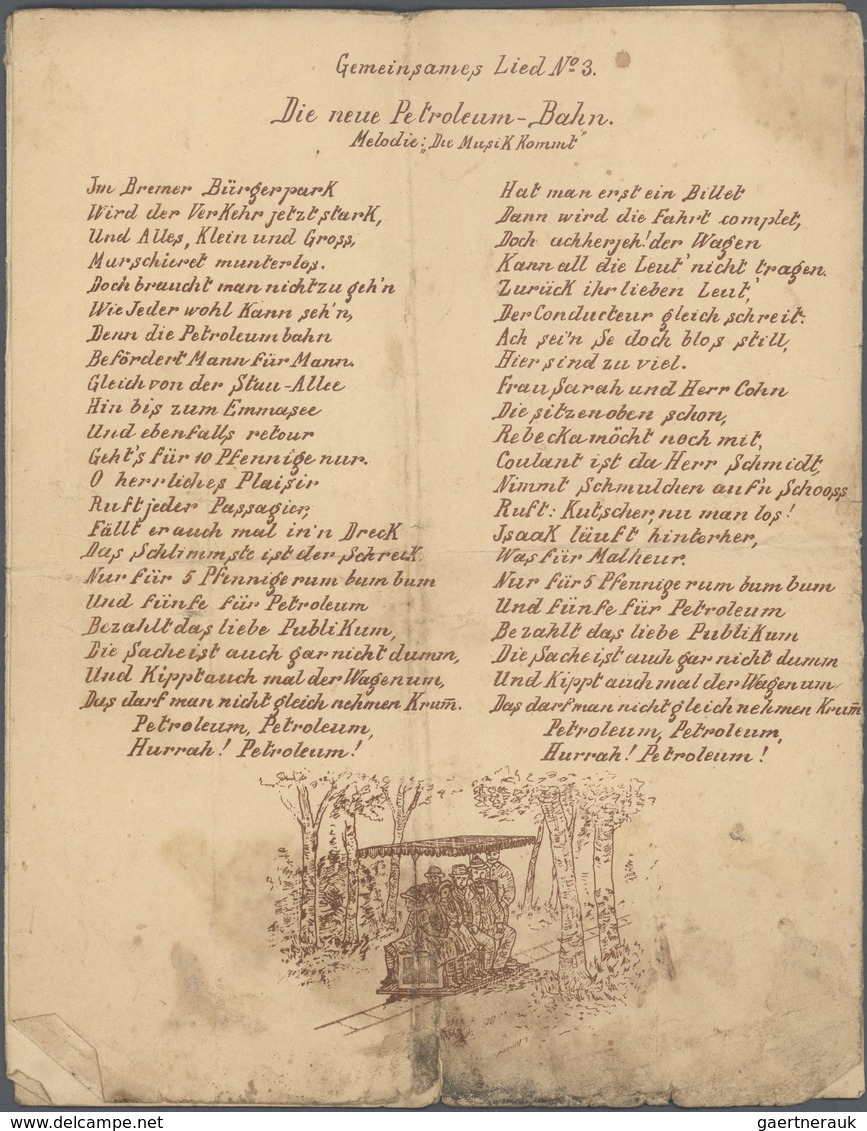 Gemeinsames Lied Nº 3.
Die neue Petroleum-Bahn.
Melodie: „Die Musik Kommt"
Im Bremer Bürgerpark
Wird der Verkehr jetzt stark,
Und Alles, Klein und Gross,
Marschieret munter los.
Doch braucht man nicht zu geh'n
Wie Jeder wohl Kann seh'n,
Denn die Petroleumbahn
Befördert Mann für Mann.
Gleich von der Stau-Allee
Hin bis zum Emmasee
Und ebenfalls retour
Geht's für 10 Pfennige nur.
O herrliches Plaisir
Ruft jeder Passagier,
Fällt er auch mal in'n Dreck
Das Schlimmste ist der Schreck.
Nur für 5 Pfinnige rum bum bum
Und fünfe für Petroleum
Bezahlt das liebe Publikum,
Die Sache ist auch gar nicht dumm,
Und Kippt auch mal der Wagen um,
Das darf man nicht gleich nehmen Krum̅.
Petroleum, Petroleum,
Hurrah! Petroleum!
Hat man erst ein Billet
Dann wird die Fahrt complet,
Doch achherjeh! der Wagen
Kann all die Leut' nicht tragen.
Zurück ihr lieben Leut',
Der Conducteur gleich schreit:
Ach sei'n Se doch blos still,
Hier sind zu viel.
Frau Sarah und Herr Cohn
Die sitzen oben schon,
Rebecka möcht noch mit,
Coulant ist da Herr Schmidt,
Nimmt Schmulchen auf'n Schooss
Ruft: Kutscher, nu man los!
Isaak läuft hinterher,
Was für Malheur.
Nur für 5 Pfennige rum bum bum
Und fünfe für Petroleum
Bezahlt das liebe Publikum
Die Sache ist auch gar nicht dumm
Und Kippt auch mal der Wagen um
Das darf man nicht gleich nehmen Krum̅
Petroleum, Petroleum,
Hurrah! Petroleum!
delcampe.net
gaertnerauk